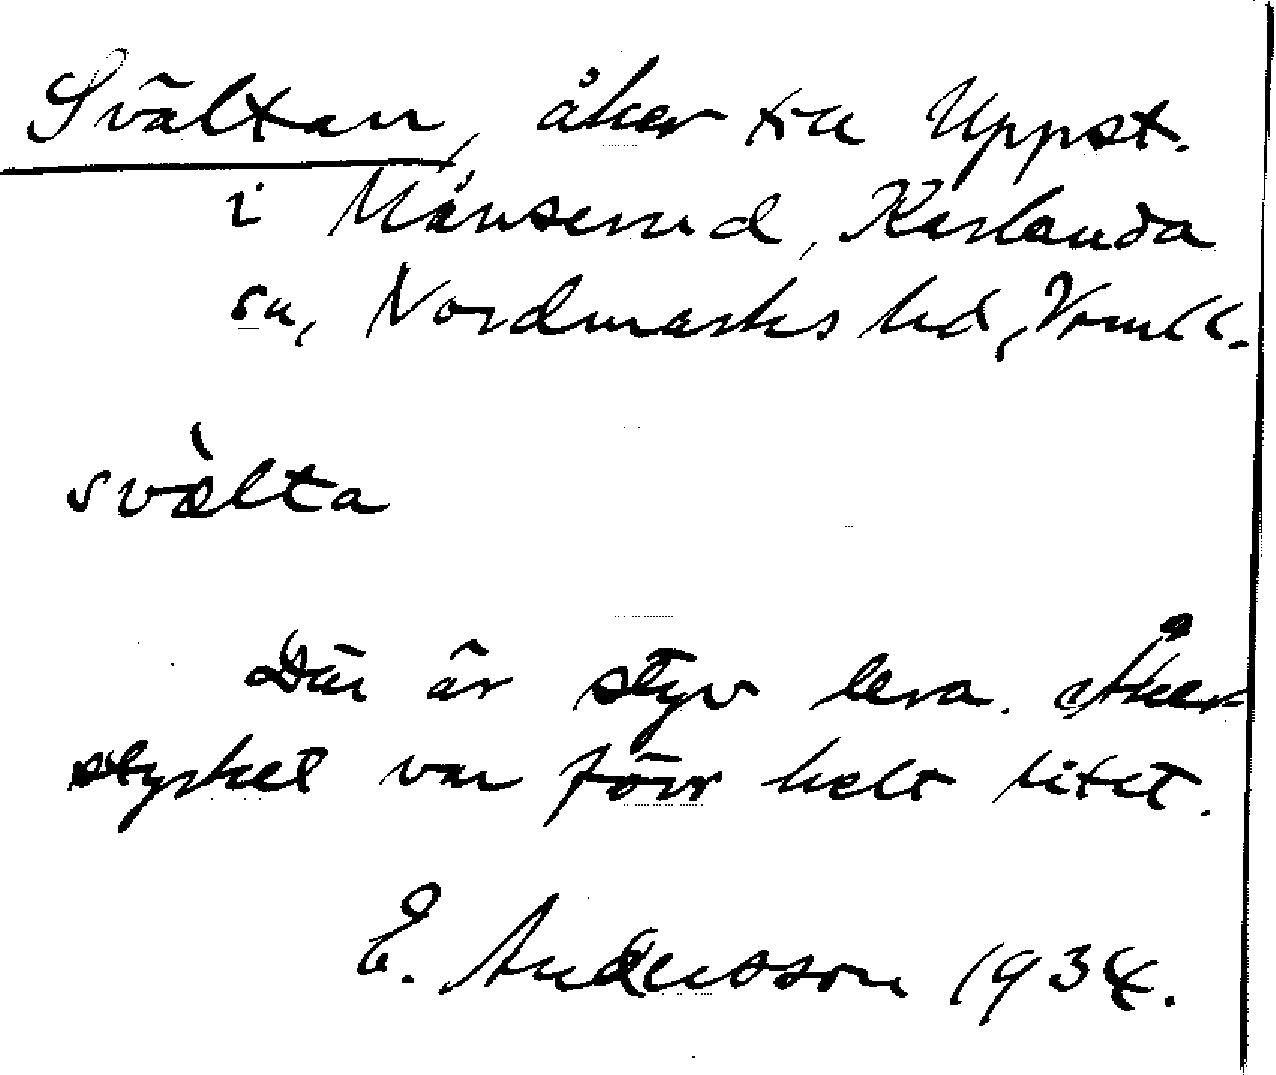 Svältan, åker till Uppst.
i Månserud, Karlanda
sn, Nordmarks hd, Vrml.
svælta
Där är styv lera. Åker-
stycket var förr helt litet.
E. Andersson 1934.